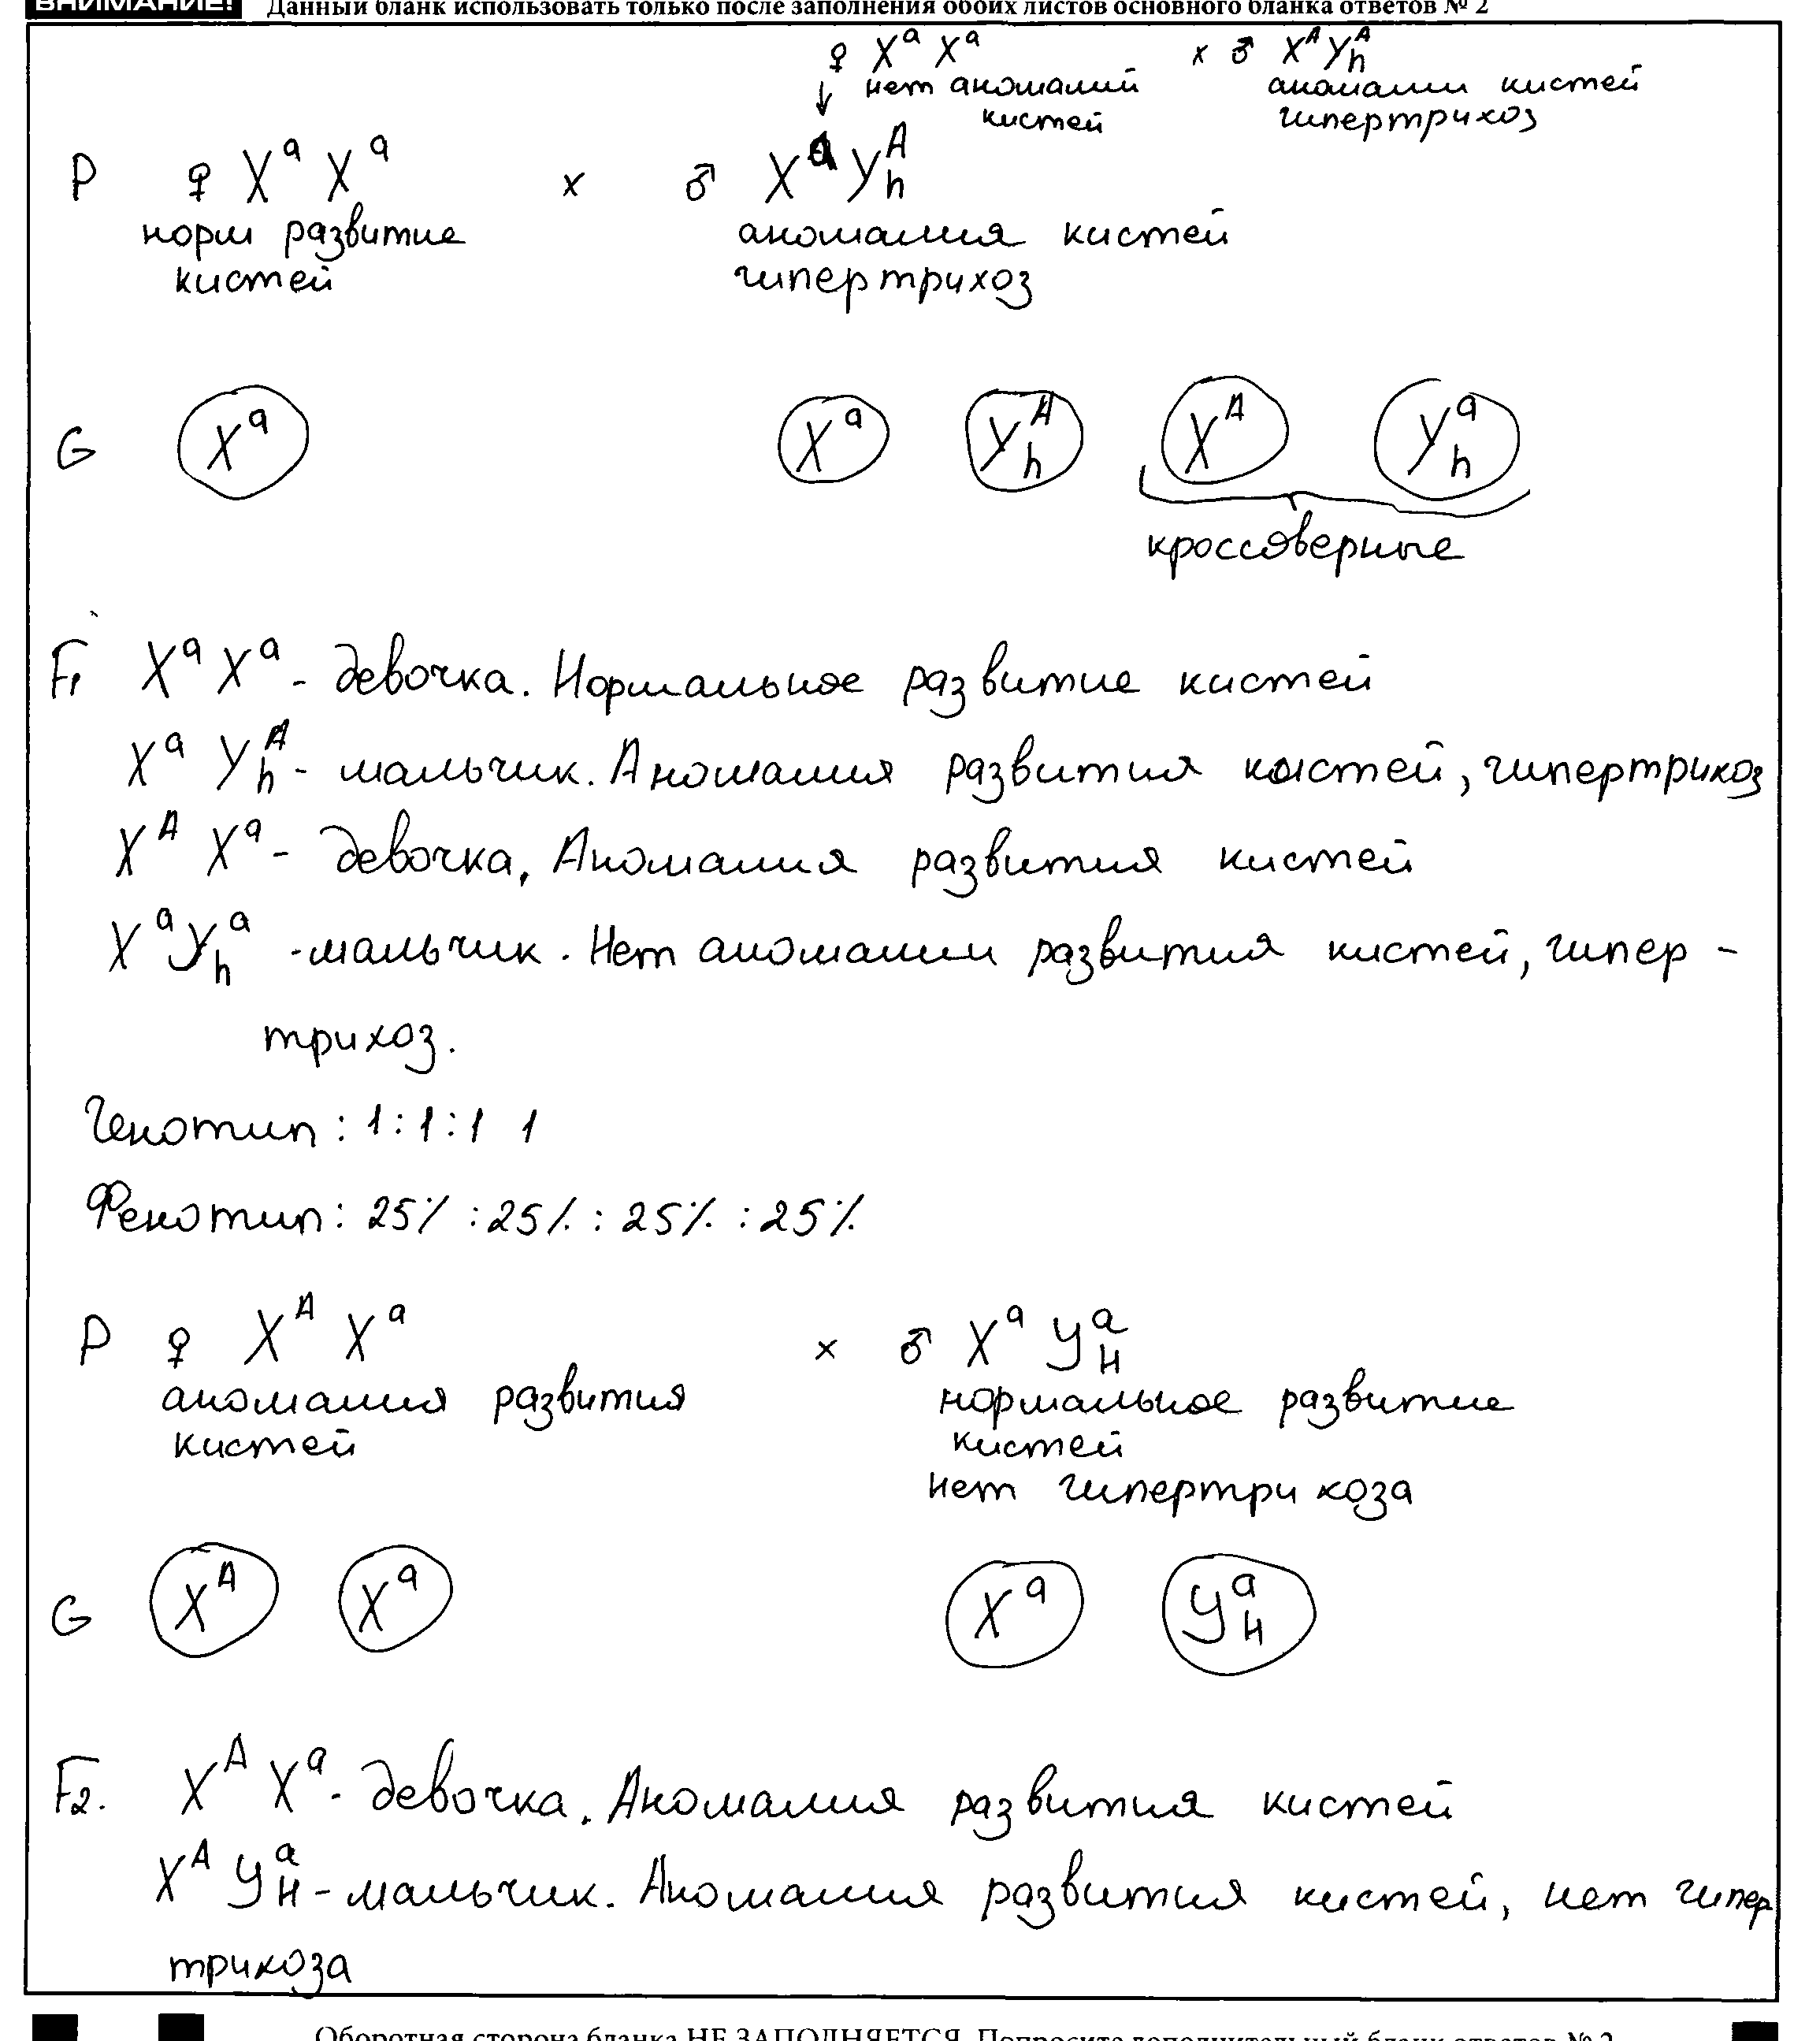 ВНИМАНИЕ! Данный бланк использовать только после заполнения обоих листов основного бланка ответов № 2
♀ Xᵃ Xᵃ × ♂ Xᴬ Yₕᴬ
нет аномалий аномалии кистей
↓ кистей гипертрихоз
P ♀ Xᵃ Xᵃ × ♂ Xᵃ Yₕᴬ
норм развитие аномалия кистей
кистей гипертрихоз
G Xᵃ Xᵃ Yₕᴬ Xᴬ Yₕᵃ
кроссоверные
F₁ Xᵃ Xᵃ - девочка. Нормальное развитие кистей
Xᵃ Yₕᴬ - мальчик. Аномалия развития кистей, гипертрихоз
Xᴬ Xᵃ - девочка, Аномалия развития кистей
Xᵃ Yₕᵃ - мальчик. Нет аномалии развития кистей, гипер -
трихоз.
Генотип: 1:1:1 1
Фенотип: 25% : 25% : 25% : 25%
P ♀ Xᴬ Xᵃ × ♂ Xᵃ Yʜᵃ
аномалия развития нормальное развитие
кистей кистей
нет гипертрихоза
G Xᴬ Xᵃ Xᵃ Yʜᵃ
F₂. Xᴬ Xᵃ - девочка. Аномалия развития кистей
Xᴬ Yʜᵃ - мальчик. Аномалия развития кистей, нет гипер
трихоза
Оборотная сторона бланка НЕ ЗАПОЛНЯЕТСЯ. Попросите дополнительный бланк ответов № 2